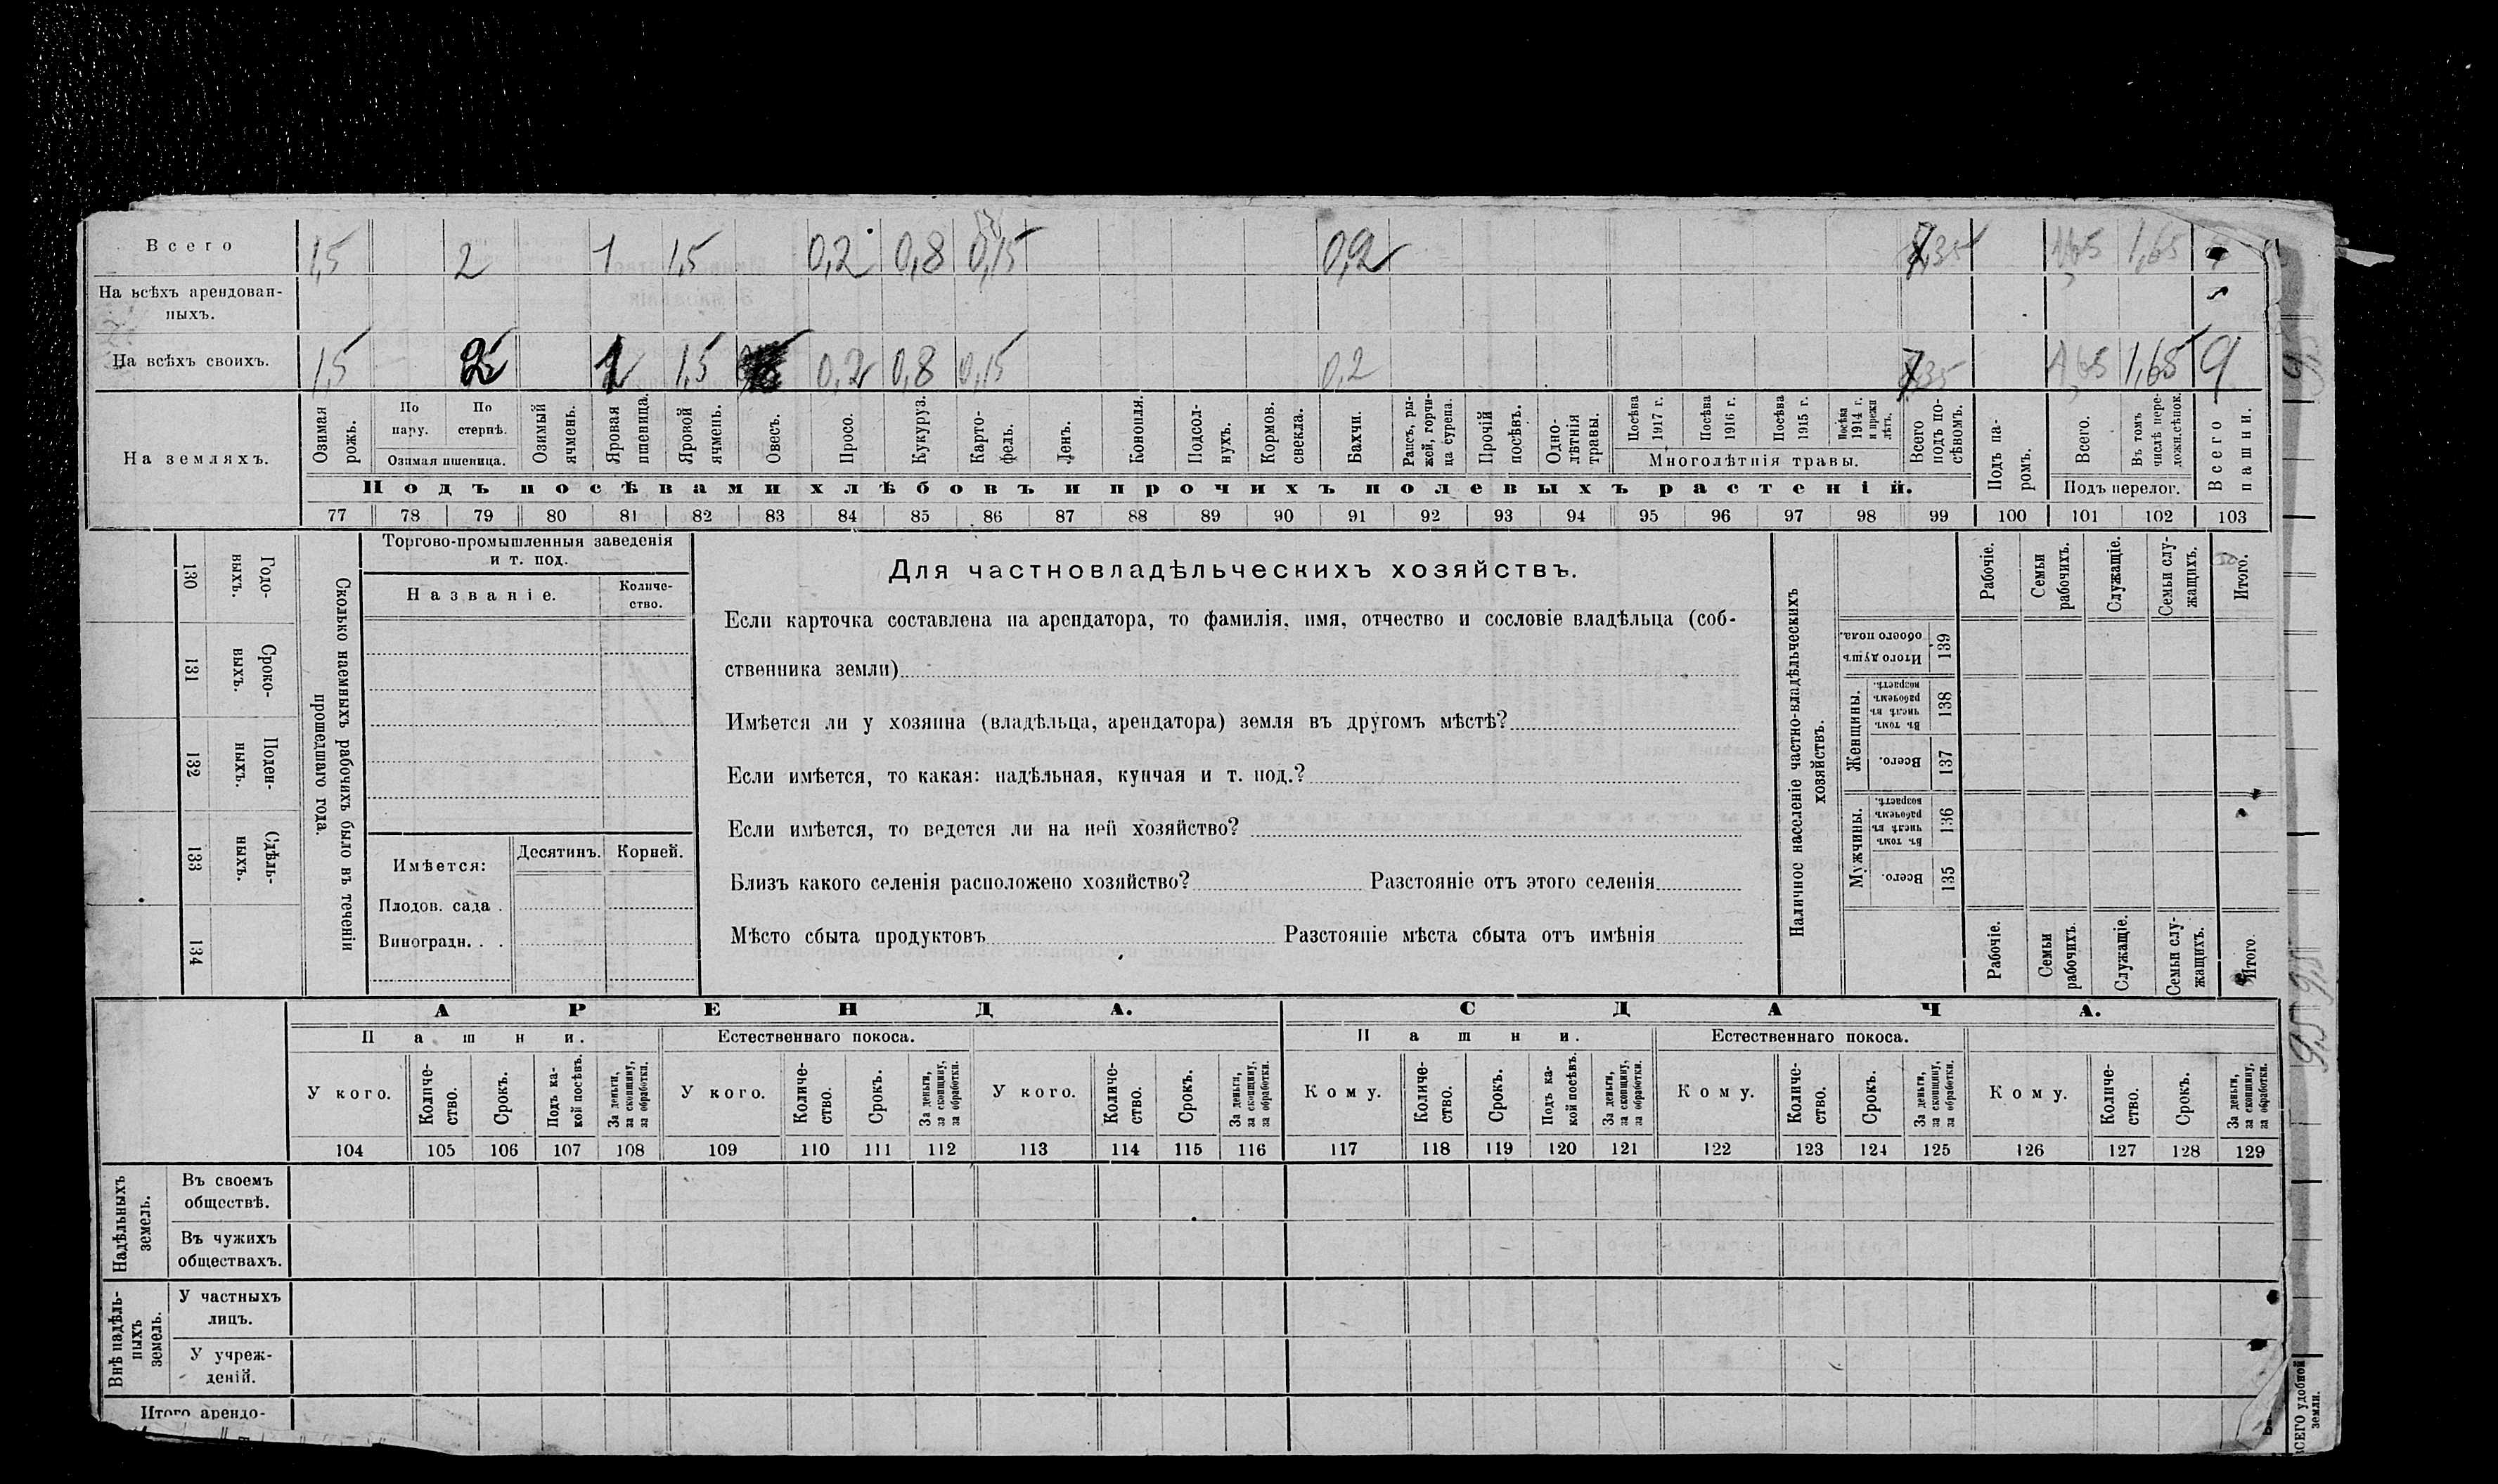 Всего 1,5 2 1 1,5 0,2 0,8 0,15 0,2 7,35 1,65 1,65
На всѣхъ арендован-
ныхъ.
На всѣхъ своихъ. 1,5 2 1 1,5 0,2 0,8 0,15 0,2 7,35 1,65 1,65 9
На земляхъ.
Озимая рожь.
По пару.
По стернѣ.
Озимая пшеница.
Озимый ячмень.
Яровая пшеница.
Яровой ячмень.
Овесъ.
Просо.
Кукуруз.
Карто-
фель.
Ленъ.
Конопля.
Подсол-
нухъ.
Кормов. свекла.
Бахчи.
Рапсъ, ры-
жей, горчи-
ца сурепа.
Прочій посѣвъ.
Одно-
лѣтнія травы.
Посѣва 1917 г.
Посѣва 1916 г.
Посѣва 1915 г.
Посѣва 1914 г. и прежн лѣтъ.
Многолѣтнія травы.
Всего подъ по-
сѣвомъ.
Подъ па-
ромъ.
Всего.
Въ томъ числѣ пере-
ложн.сѣнок.
Подъ перелог.
Всего пашни.
Подъ посѣвами хлѣбовъ и прочихъ полевыхъ растеній.
77 78 79 80 81 82 83 84 85 86 87 88 89 90 91 92 93 94 95 96 97 98 99 100 101 102 103
130 Годо-
выхъ.
131 Сроко-
выхъ.
132 Поден-
ныхъ.
133 Сдѣль-
ныхъ.
134
Сколько наемныхъ рабочихъ было въ теченіи
прошедшаго года.
Торгово-промышленныя заведенія
и т. под.
Названіе.
Количе-
ство.
Имѣется:
Десятинъ. Корней.
Плодов. сада .
Виноградн. . .
Для частновладѣльческихъ хозяйствъ.
Если карточка составлена на арендатора, то фамилія, имя, отчество и сословіе владѣльца (соб-
ственника земли)
Имѣется ли у хозяина (владѣльца, арендатора) земля въ другомъ мѣстѣ?
Если имѣется, то какая: надѣльная, купчая и т. под.?
Если имѣется, то ведется ли на ней хозяйство?
Близъ какого селенія расположено хозяйство? Разстояніе отъ этого селенія
Мѣсто сбыта продуктовъ Разстояніе мѣста сбыта отъ имѣнія
Наличное населеніе частно-владѣльческихъ
хозяйствъ.
Рабочіе.
Семьи рабочихъ.
Служащіе.
Семьи слу-
жащихъ.
Итого.
Итого душъ обоего пола. 139
Женщины.
Въ томъ числѣ въ рабочемъ возрастѣ. 138
Всего. 137
Мужчины.
Въ томъ числѣ въ рабочемъ возрастѣ. 136
Всего. 135
Рабочіе.
Семьи рабочихъ.
Служащіе.
Семьи слу-
жащихъ.
Итого.
АРЕНДА. СДАЧА.
Пашни. Естественнаго покоса. Пашни. Естественнаго покоса.
У кого.
Количе-
ство.
Срокъ.
Подъ ка-
кой посѣвъ.
За деньги, за скопщину, за обработки.
У кого.
Количе-
ство.
Срокъ.
За деньги, за скопщину, за обработки.
У кого.
Количе-
ство.
Срокъ.
За деньги, за скопщину, за обработки.
Кому.
Количе-
ство.
Срокъ.
Подъ ка-
кой посѣвъ.
За деньги, за скопщину, за обработки.
Кому.
Количе-
ство.
Срокъ.
За деньги, за скопщину, за обработки.
Кому.
Количе-
ство.
Срокъ.
За деньги, за скопщину, за обработки.
104 105 106 107 108 109 110 111 112 113 114 115 116 117 118 119 120 121 122 123 124 125 126 127 128 129
Надѣльныхъ
земель.
Въ своемъ
обществѣ.
Въ чужихъ
обществахъ.
Внѣ надѣль-
ныхъ
земель.
У частныхъ
лицъ.
У учреж-
деній.
Итого арендо-
ВСЕГО удобной
земли.